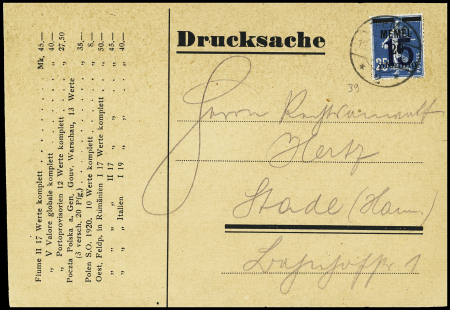 Drucksache
MEMEL
15
39
Herrn Rechtsanwalt
Hertz
Stade (Hann.)
Bahnhofstr 1
Fiume II 17 Werte komplett . . . . . . . Mk. 45,—
„ V Valore globale komplett . . . . . . „ 40,—
„ Portoprovisorien 12 Werte komplett . . . „ 27,50
Poczta Polska a. Gen. Gouv. Warschau, 13 Werte
(3 versch. 20 Pfg.) . . . . . . „ 35,—
Polen S.O. 1920. 10 Werte komplett . . . . „ 8,—
Oest. Feldp. in Rumänien I 17 Werte komplett . „ 50,—
„ „ „ II 17 „ „ . „ 45,—
„ „ „ Italien I 19 „ „ . „ 40,—